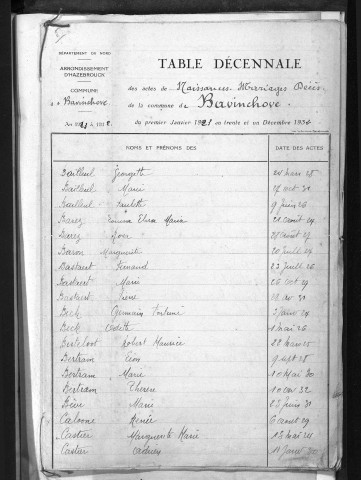 DÉPARTEMENT DU NORD
ARRONDISSEMENT
D'HAZEBROUCK
COMMUNE
Bavinchove
TABLE DÉCENNALE
des actes de Naissances Mariages Décès
de la commune de Bavinchove
du premier Janvier 1921 au trente et un Décembre
NOMS ET PRÉNOMS DES
DATE DES ACTES
Bailleul Georgette 24 mars 28
Bailleul Marie 17 oct 31
Bailleul Paulette 9 juin 26
Barez Emma Elisa Maria 21 août 29
Barez 28 août 29
Baron Marguerite 20 juill 24
Bastaert Fernand 23 juill 26
Bastaert Marie 26 oct 29
Bastaert Pierre 31
Beck Germain 24
Beck Odette 1 mai 26
Berteloot Robert Maurice 22 mars 25
Bertram Léon 9 sept 28
Bertram Marie 10 mai 30
Bertram Thérèse 10 32
Marie 23 juin 31
Caloone Renée 6 août 29
Castier Marguerite Marie 15 mai 24
Castier 11 janv